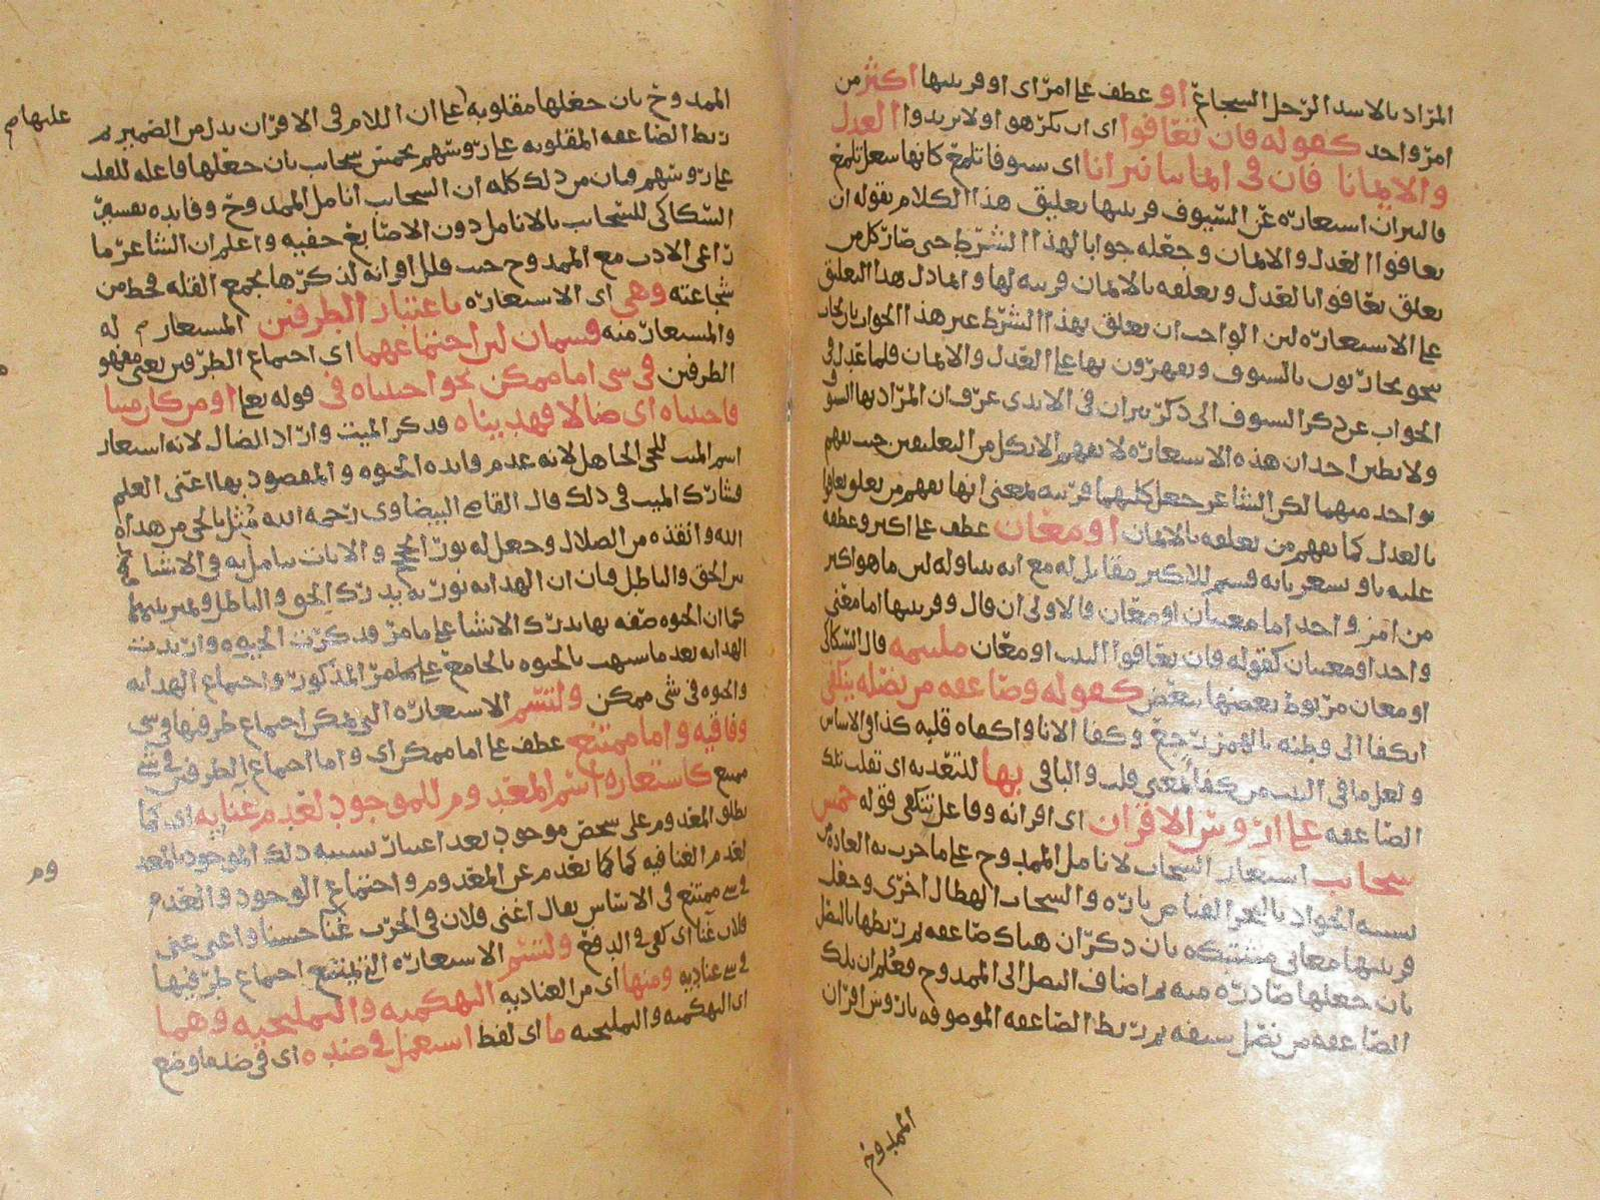 المراد بالاسد الرجل الشجاع او عطف على امر اى او قرينتها اكثر من
امر واحد كقوله فان تعافوا اى ان تكرهوا ولا تريدوا العدل
والايمانا فان فى ايماننا نيرانا اى سيوفا تلمع كانها شعل تلمع
فالنيران استعارة عن السيوف قرينتها تعليق هذا الكلام بقوله ان
تعافوا العدل والايمان وجعله جوابا لهذا الشرط حتى صار كل من
تعلق تعافوا بالعدل وتعلقه بالايمان قرينة لها وانما دل هذا التعليق
على الاستعارة لان الواجب ان تعلق بهذا الشرط عن هذا الجواب
نحو تحاربون بالسيوف وتقهرون بها على العدل والايمان فلما عدل فى
الجواب عن ذكر السيوف الى ذكر نيران فى الايدى عرف ان المراد بها السيوف
ولا تظن احد ان هذه الاستعارة لا تفهم الا بكل من التعليقين حيث تفهم
بواحد منهما لكن الشاعر جعل كليهما قرينة بمعنى انها تفهم من تعلق تعافوا
بالعدل كما تفهم من تعلقه بالايمان او معان عطف على اكثر وعطفه
عليه باو تشعر بانه قسيم للاكثر مقابل له مع انه يتناوله لان ما هو اكثر
من امر واحد اما معنيان او معان فالاولى ان قال وقرينتها اما معنى
واحد او معنيان كقوله فان تعافوا البيت او معان ملتئمة قال السكاكى
او معان مربوط بعضها ببعض كقوله وصاعقة من نصله ينكفى
انكفا الى وطنه بالهمز رجع وكفا الانا واكفاه قلبه كذا فى الاساس
ولعل ما فى البيت من كفا بمعنى قلب والباقى بها للتعدية اى تقلب تلك
الصاعقة على ارؤس الاقران اى اقرانه وفاعل تنكفى قوله خمس
سحائب استعار السحائب لانامل الممدوح على ما جرت به العادة من
تشبيه الجواد بالبحر الفياض تارة والسحاب الهطال اخرى وجعل
قرينتها معانى مشتبكة بان ذكر ان هناك صاعقة ثم ربطها بالنصل
بان جعلها صادرة منه ثم اضاف النصل الى الممدوح فعلم ان تلك
الصاعقة من نصل سيفه ثم ربط الصاعقة الموصوفة بارؤس اقران
الممدوح
الممدوح بان جعلها مقلوبة على ان اللام فى الاقران بدل من الضمير ثم
عليها م
ربط الصاعقة المقلوبة على رؤسهم بخمس سحايب بان جعلها فاعلة للقلب
على رؤسهم فبان من ذلك كله ان السحايب انامل الممدوح وفايدة تفسير
السكاكى للسحايب بالانامل دون الاصابع خفية واعلم ان الشاعر ما
راعى الادب مع الممدوح حيث قلل اقرانه اذ ذكرها بجمع القلة فحط من
شجاعته وهى اى الاستعارة باعتبار الطرفين المستعار له
والمستعار منه قسمان لان اجتماعهما اى اجتماع الطرفين يعنى مفهو
الطرفين فى شى اما ممكن نحو احييناه فى قوله تعا او من كان ميتا
فاحييناه اى ضالا فهديناه قد ذكر الميت واراد الضال لانه استعار
اسم الميت للحى الجاهل لانه عدم فايدة الحيوة والمقصود بها اعنى العلم
فشارك الميت فى ذلك قال القاضى البيضاوى رحمه الله مثل بالحى من هداه
الله وانقذه من الضلال وجعل له نور الحجج والايات يتامل به فى الاشيا
بين الحق والباطل فان ان الهداية نور به يدرك الحق والباطل ويميز بينهما
كما ان الحيوة صفة بها يدرك الاشيا على ما مر قد ذكرت الحيوة واريدت
الهداية بعد ما شبهت بالحيوة بالجامع على ما مر المذكور واجتماع الهداية
والحيوة فى شى ممكن ولتسم الاستعارة التى يمكن اجتماع طرفيها فى شى
وفاقية واما ممتنع عطف على اما ممكن اى واما اجتماع الطرفين فى شى
ممتنع كاستعارة اسم المعدوم للموجود لعدم غنايه اى كما
يطلق المعدوم على شخص موجود بعد اعتبار تشبيه ذلك الموجود بالمعد
وم
لعدم الغنا فيه كما كما تعدم عن المعدوم واجتماع الوجود والعدم
فى شى ممتنع فى الاساس يقال اغنى فلان فى الحرب غنا حسنا واغنى عنى
فلان غنا اى كفى فى الدفع ولتسم الاستعارة التى يمتنع اجتماع طرفيها
فى شى عنادية ومنها اى من العنادية التهكمية والتمليحية وهما
اى التهكمية والتمليحية ما اى لفظ استعمل فى ضده اى فى ضد ما وضع